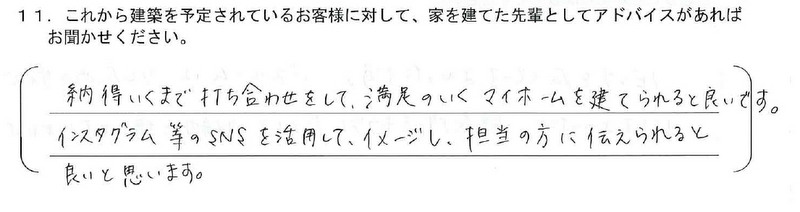 １１．これから建築を予定されているお客様に対して、家を建てた先輩としてアドバイスがあれば
お聞かせください。
納得いくまで打ち合わせをして、満足のいくマイホームを建てられると良いです。
インスタグラム等のSNSを活用して、イメージし、担当の方に伝えられると
良いと思います。